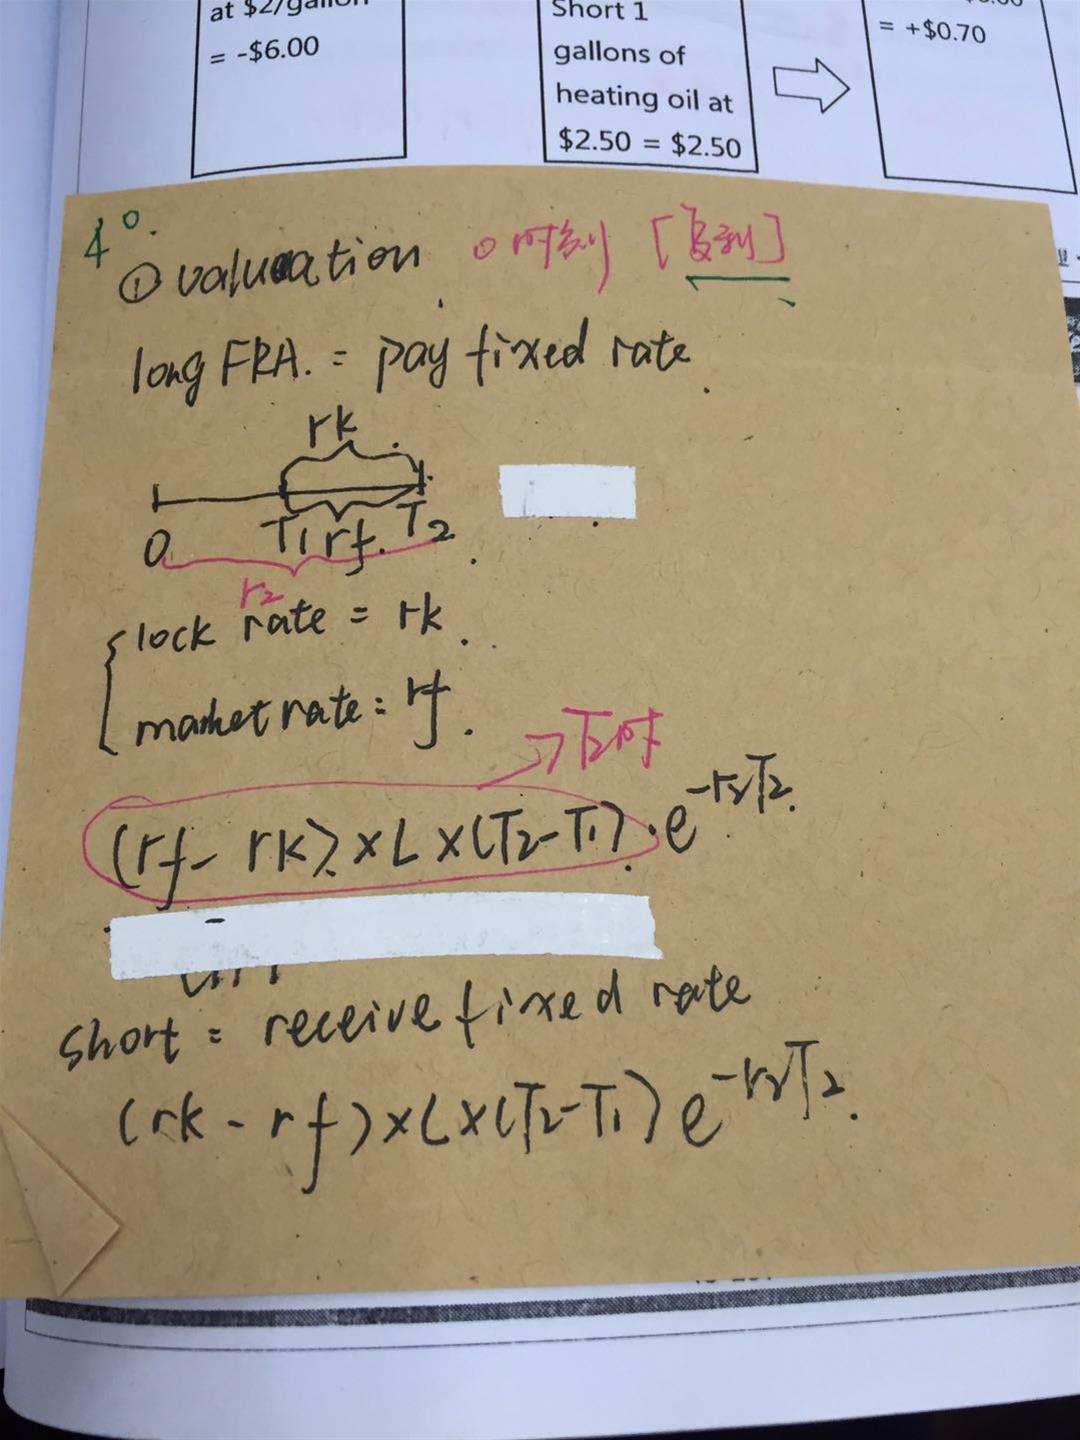 at $2/gallon
= -$6.00
Short 1
gallons of
heating oil at
$2.50 = $2.50
= +$0.70
4°.
① valuation 0时刻 [复利]
long FRA. = pay fixed rate.
rk
0 T1 rf. T2
r2
lock rate = rk.
market rate = rf.
T2时
(rf - rk) × L × (T2-T1) · e^-r2T2.
short = receive fixed rate
(rk - rf) × L × (T2-T1) e^-r2T2.